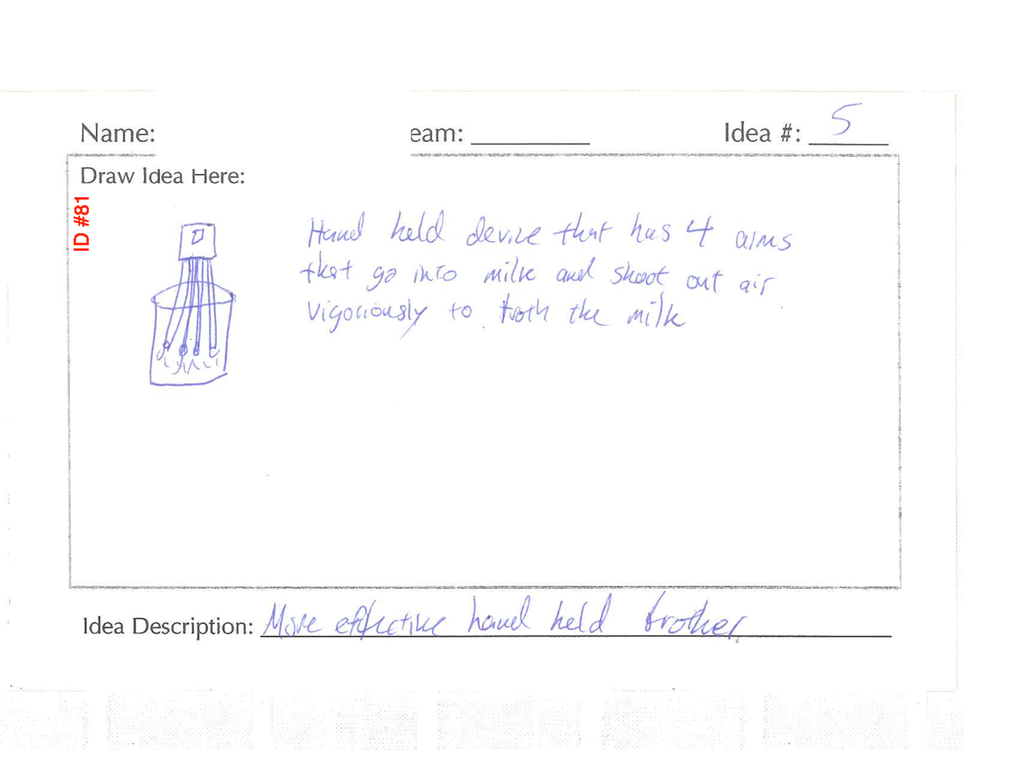 Name:
eam: ________
Idea #: 5
Draw Idea Here:
ID #81
Hand held device that has 4 arms
that go into milk and shoot out air
vigoriously to froth the milk
Idea Description: More effective hand held frother.